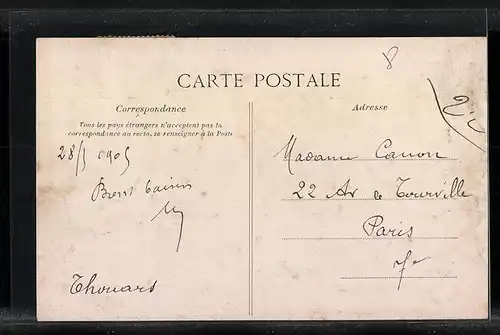 8
CARTE POSTALE
Correspondance
Tous les pays étrangers n'acceptent pas la
correspondance au recto, se renseigner à la Poste
Adresse
28/ 1905
baisers
Thouars
Madame Canon
22 Av de Tourville
Paris
7e